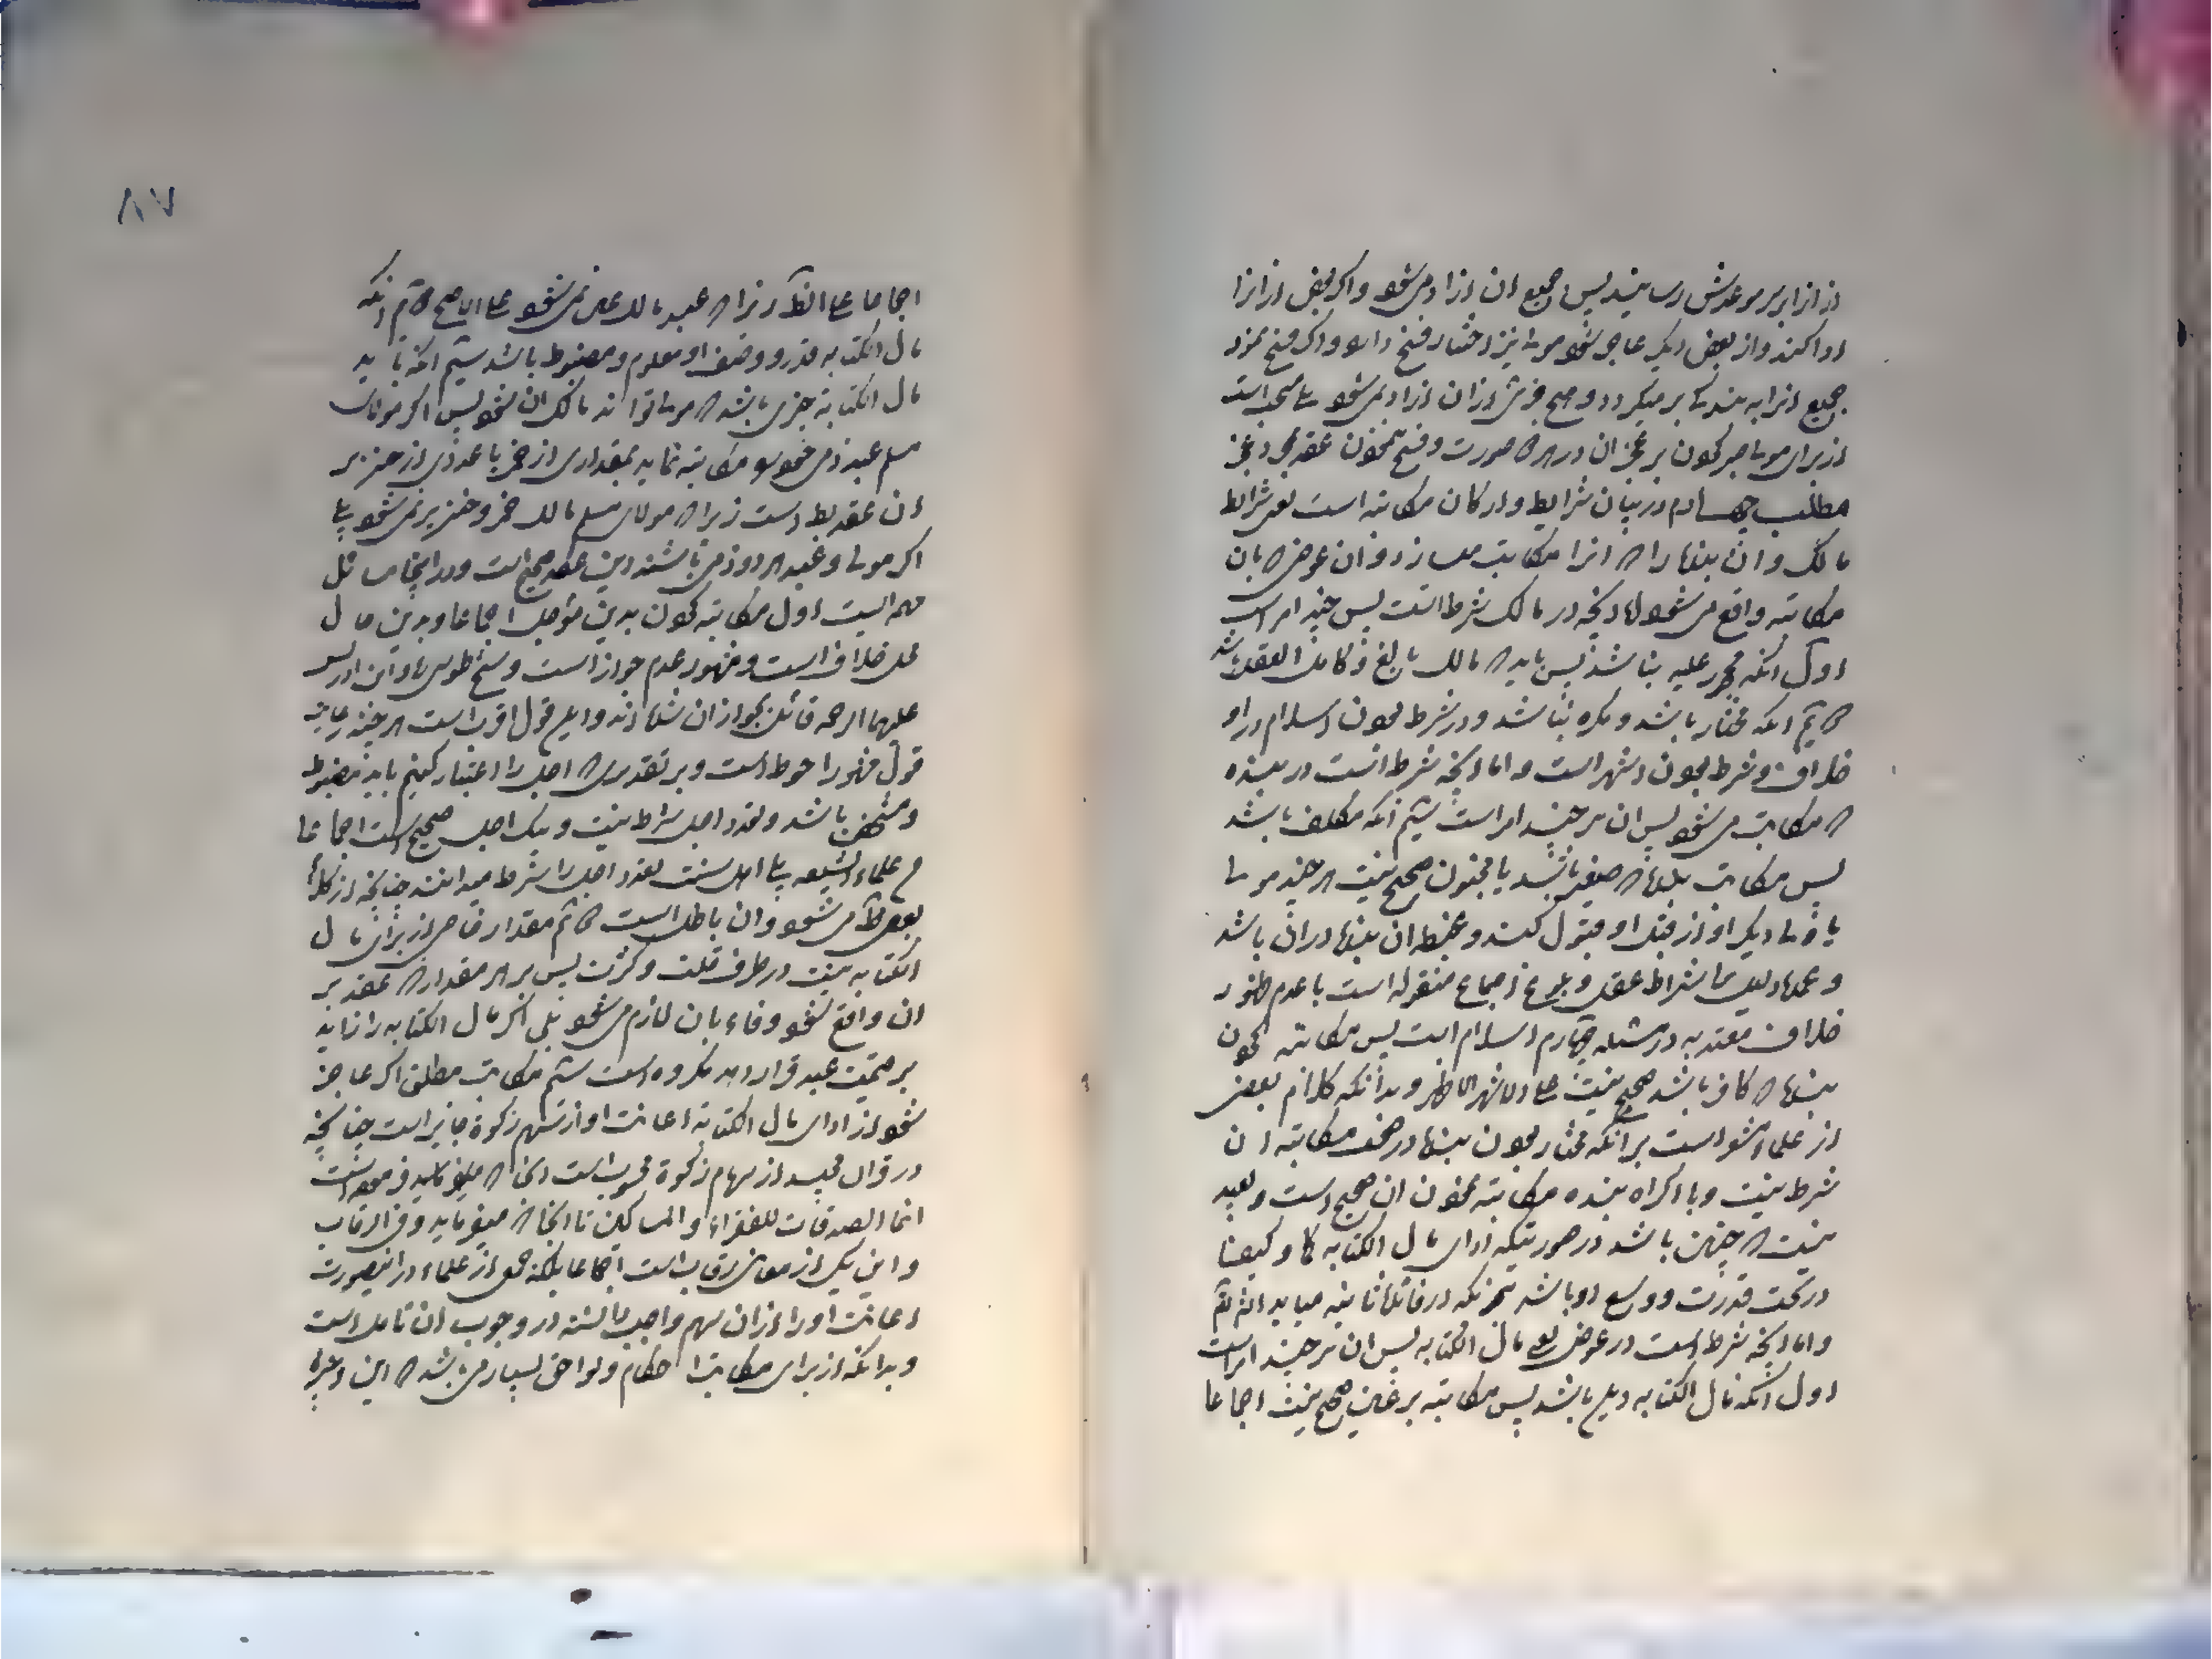 از انرا بر موعدش رسانید پس جمیع ان ازاد می شود واکر بعض از انرا
ادا کند واز بعض دیکر عاجز شود مولی نیز اختیار فسخ دارد واکر فسخ نمود
جمیع انرا به بندکی بر میکردد وهیچ جزئی از ان ازاد نمی شود مستحب است
از برای مولی صبر نمودن بر عجز ان در هر صورت وفسخ ننمودن عقد بمجرد عجز
مطلب چهارم در بیان شرایط وارکان مکاتبه است یعنی شرائط
مالک وان بنده را که انرا مکاتب میسازد وان عوض که بان
مکاتبه واقع می شود اما انچه در مالک شرط است پس چند امر است
اول انکه محجور علیه نباشد پس باید که مالک بالغ وکامل العقل باشد
دویم انکه مختار باشد ومکره نباشد ودر شرط بودن اسلام در او
خلاف وشرط نبودن اشهر است واما انچه شرط است در بنده
که مکاتب می شود پس ان نیز چند امر است سیم انکه مکلف باشد
پس مکاتب بنده که صغیر باشد یا مجنون صحیح نیست هر چند مولی
یا ولی دیکر او از قبل او قبول کند وغبطه ان بنده در ان باشد
وعمده دلیل بر اشتراط عقل وبلوغ اجماع منقوله است با عدم ظهور
خلاف معتد به در مسئله چهارم اسلام است پس مکاتبه نمودن
بنده که کافر باشد صحیح نیست علی الاشهر الاظهر وبدانکه کلام بعض
از علما مشعر است بر انکه مختار بودن بنده در صحت مکاتبه ان
شرط نیست وبا اکراه بنده مکاتبه نمودن ان صحیح است وبعید
نیست که چنین باشد در صورتیکه ادای مال الکتابه کما وکیفا
در تحت قدرت ووسع او باشد
واما انچه شرط است در عوض یعنی مال الکتابه پس ان نیز چند امر است
اول انکه مال الکتابه دین باشد پس مکاتبه بر عین صحیح نیست اجماعا
۸۷
اجماعا علی الظاهر زیرا که عبد مالک عین نمی شود علی الاصح دویم انکه
مال الکتابه قدر ووصف او معلوم ومضبوط باشد سیم انکه باید
مال الکتابه چیزی باشد که مولی تواند مالک ان شود پس اکر مولای
مسلم عبد ذمی خود را مکاتبه نماید بمقداری از خمر یا عددی از خنزیر
ان عقد باطل است زیرا که مولای مسلم مالک خمر وخنزیر نمی شود بلی
اکر مولی وعبد هر دو ذمی باشند این عقد صحیح است ودر اینجا مسائل
مهمه ایست اول مکاتبه نمودن بدین مؤجل اجماعا وبدین حال
محل خلاف است ومشهور عدم جواز است وشیخ طوسی وابن ادریس
علیهما الرحمه قائل بجواز ان شده اند واین قول اقرب است هر چند رعایت
قول مشهور احوط است وبر تقدیری که اجل را اعتبار کنیم باید مضبوط
ومشخص باشد وتعدد اجل شرط نیست ویک اجل صحیح است اجماعا
من علماء الشیعه بلی اهل سنت تعدد اجل را شرط میدانند چنانچه از کلام
بعض ظاهر می شود وان باطل است دویم مقدار خاصی از برای مال
الکتابه نیست در طرف قلت وکثرت پس بر هر مقدار که عقد بر
ان واقع شود وفاء بان لازم می شود بلی اکر مال الکتابه را زاید
بر قیمت عبد قرار دهد مکروه است سیم مکاتب مطلق اکر عاجز
شود از ادای مال الکتابه اعانت او از سهم زکوة جایز است چنانچه
در قران مجید از سهام زکوة محسوب است انجا که میفرماید
انما الصدقات للفقراء والمساکین تا انجا که میفرماید وفی الرقاب
واین یکی از معانی رقاب است اجماعا بلکه جمعی از علماء در اینصورت
اعانت او را از ان سهم واجب دانسته در وجوب ان تامل است
وبدانکه از برای مکاتب احکام ولواحق بسیار می باشد که این